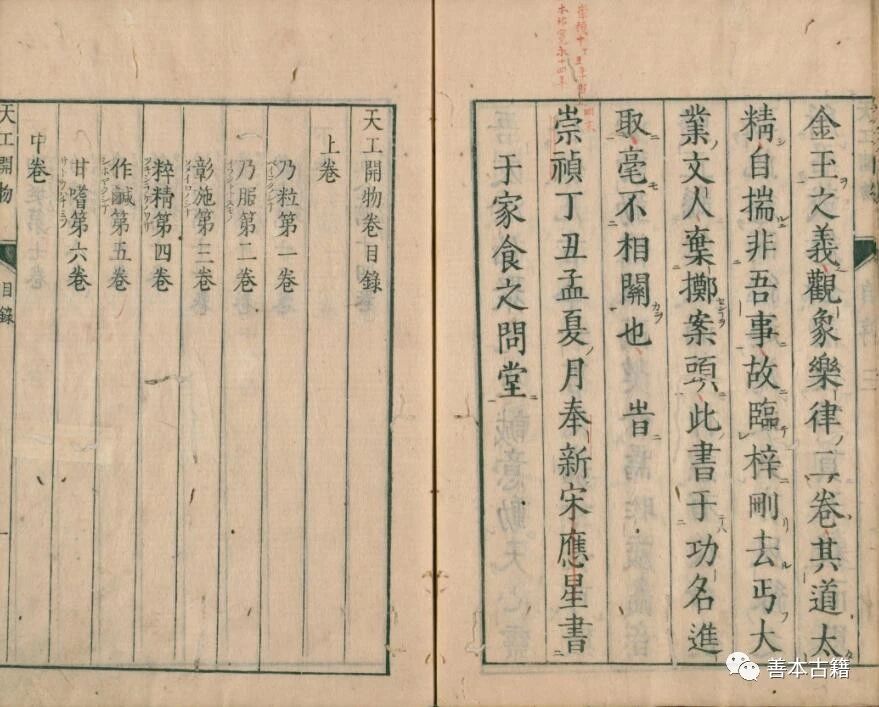 金玉之義觀象樂律二卷其道太
精自揣非吾事故臨梓刪去丐大
業文人棄擲案頭此書于功名進
取毫不相關也 旹
崇禎丁丑孟夏月奉新宋應星書
于家食之問堂
天工開物卷目錄
上卷
乃粒第一卷
乃服第二卷
彰施第三卷
粹精第四卷
作鹹第五卷
甘嗜第六卷
中卷
天工開物 目錄 一
善本古籍